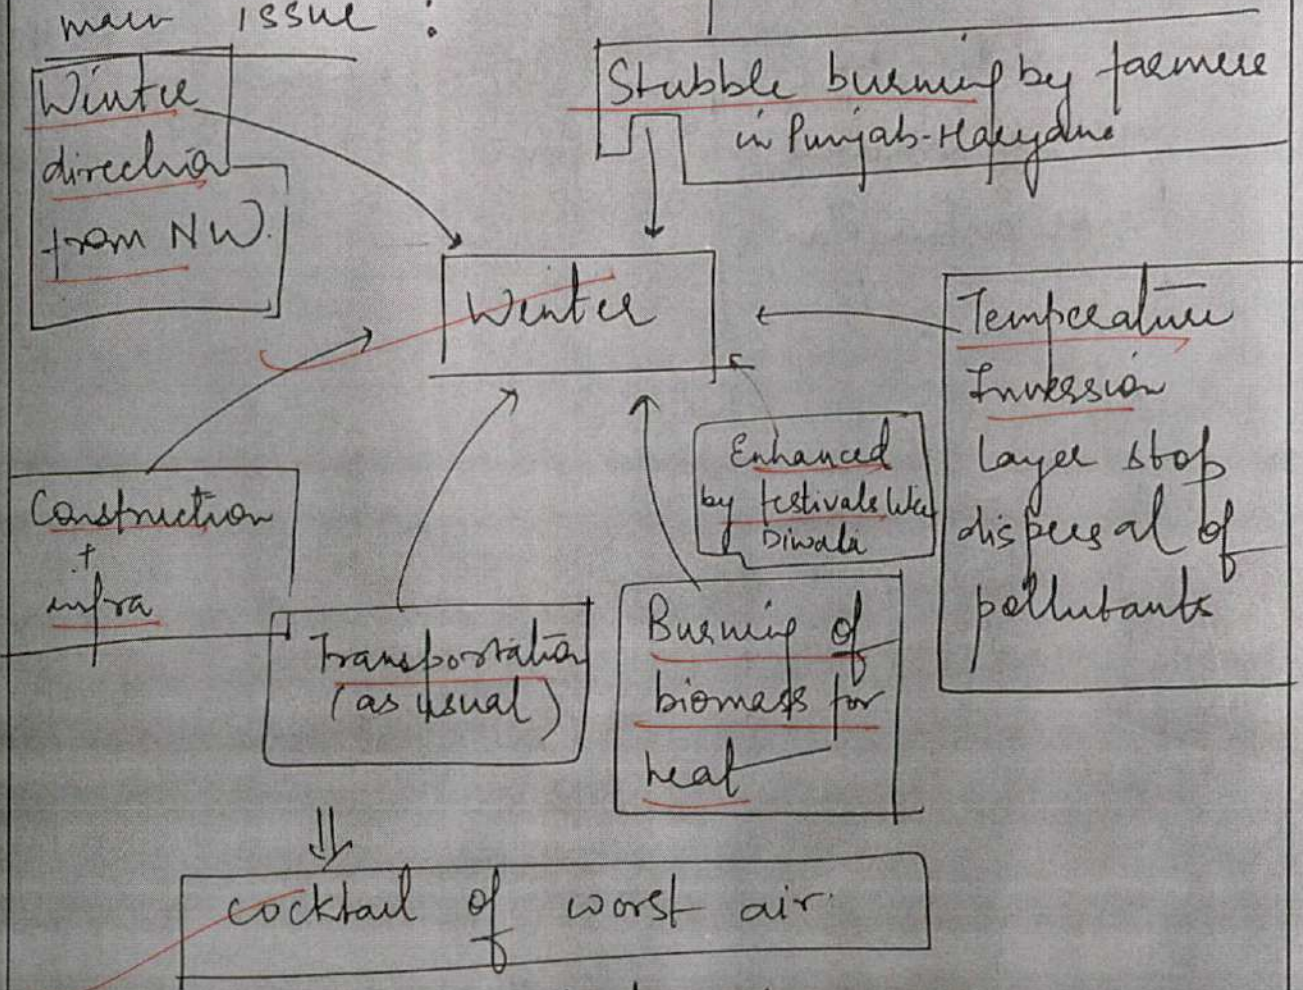 main issue :
Winter
direction
from NW.
Stubble burning by farmers
in Punjab-Haryana
Winter
Temperature
Inversion
layer stop
dispersal of
pollutants
Enhanced
by festivals like
Diwali
Construction
+
infra
Transportation
(as usual)
Burning of
biomass for
heat
cocktail of worst air.